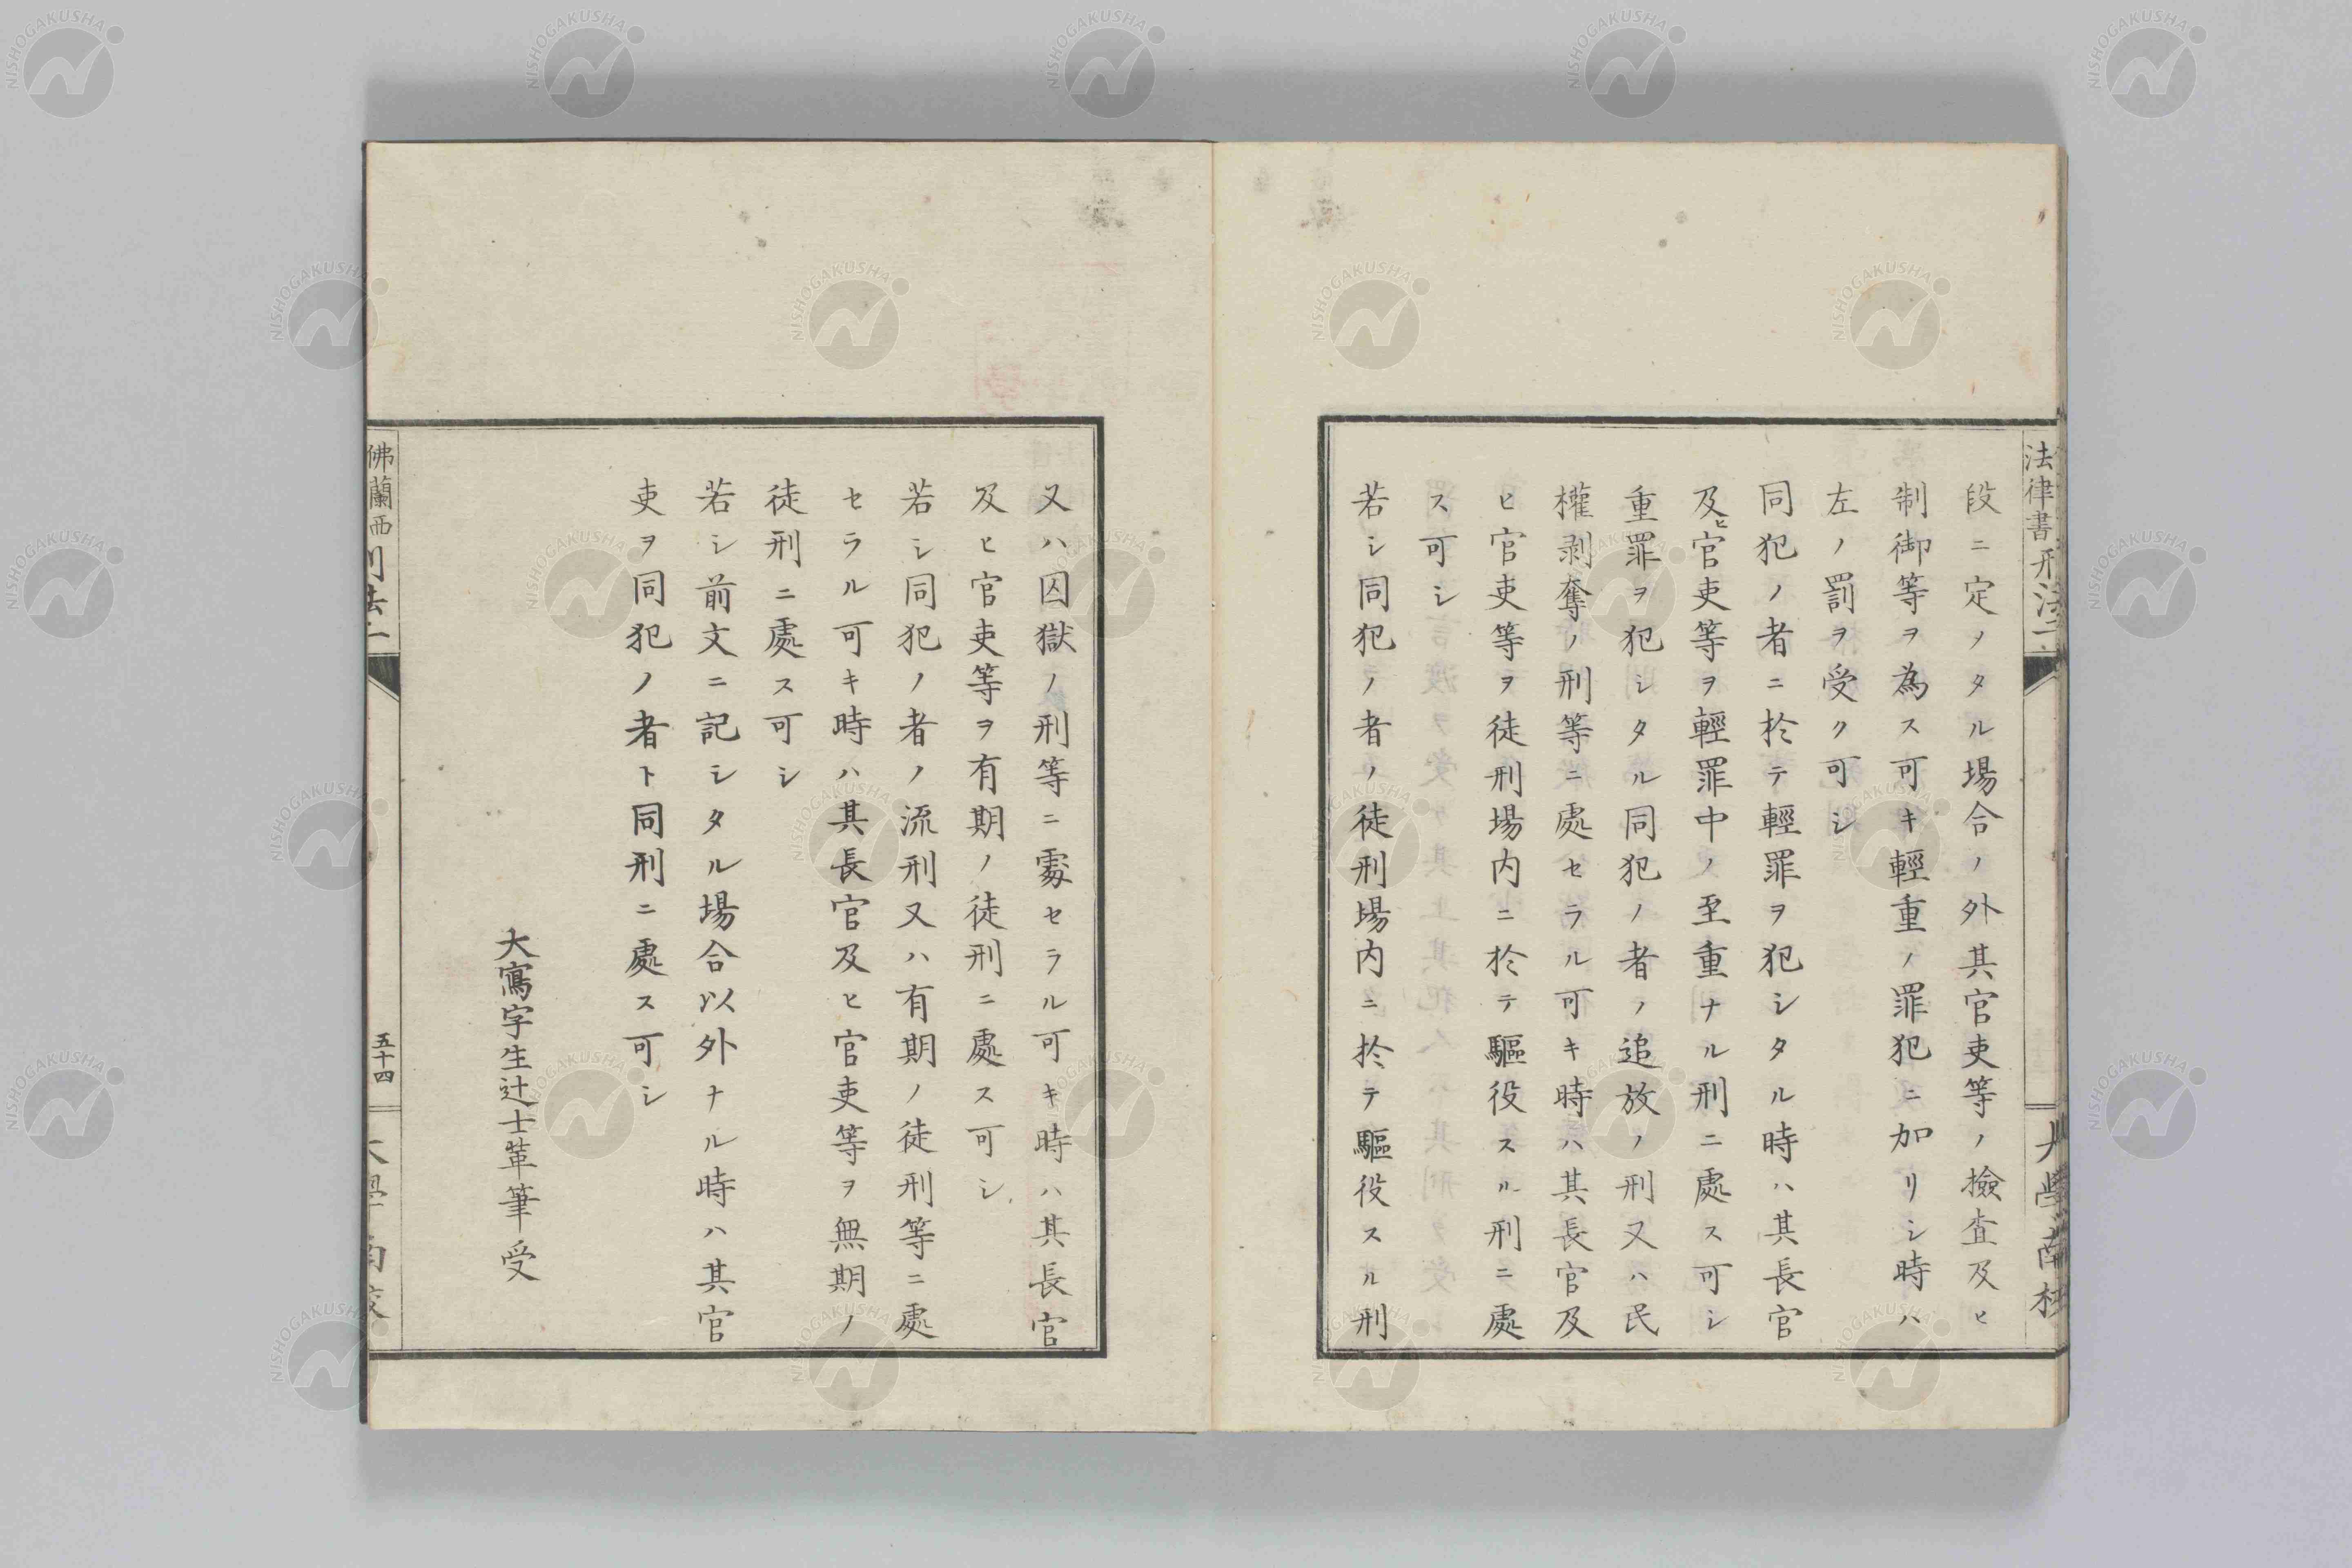 法律書刑法二
段ニ定ノタル場合ノ外其官吏等ノ撿査及ヒ
制御等ヲ為ス可キ輕重ノ罪犯ニ加リシ時ハ
左ノ罰ヲ受ク可シ
同犯ノ者ニ於テ輕罪ヲ犯シタル時ハ其長官
及ヒ官吏等ヲ輕罪中ノ至重ナル刑ニ處ス可シ
重罪ヲ犯シタル同犯ノ者ノ追放ノ刑又ハ民
權剥奪ノ刑等ニ處セラル可キ時ハ其長官及
ヒ官吏等ヲ徒刑場内ニ於テ驅役スル刑ニ處
ス可シ
若シ同犯ノ者ノ徒刑場内ニ於テ驅役スル刑
又ハ囚獄ノ刑等ニ處セラル可キ時ハ其長官
及ヒ官吏等ヲ有期ノ徒刑ニ處ス可シ
若シ同犯ノ者ノ流刑又ハ有期ノ徒刑等ニ處
セラル可キ時ハ其長官及ヒ官吏等ヲ無期ノ
徒刑ニ處ス可シ
若シ前文ニ記シタル場合以外ナル時ハ其官
吏ヲ同犯ノ者ト同刑ニ處ス可シ
大寫字生辻士革筆受
佛蘭西刑法二
五十四
大學南校
NISHOGAKUSHA